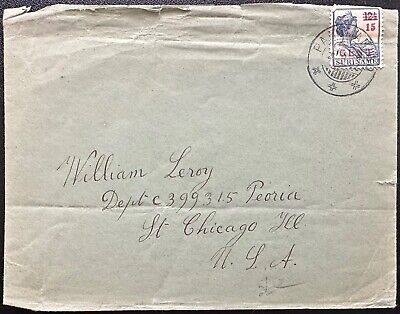 12½
15
CENT
SURINAME
William Leroy
Dept C 399315 Peoria
St Chicago Ill
U. S. A.